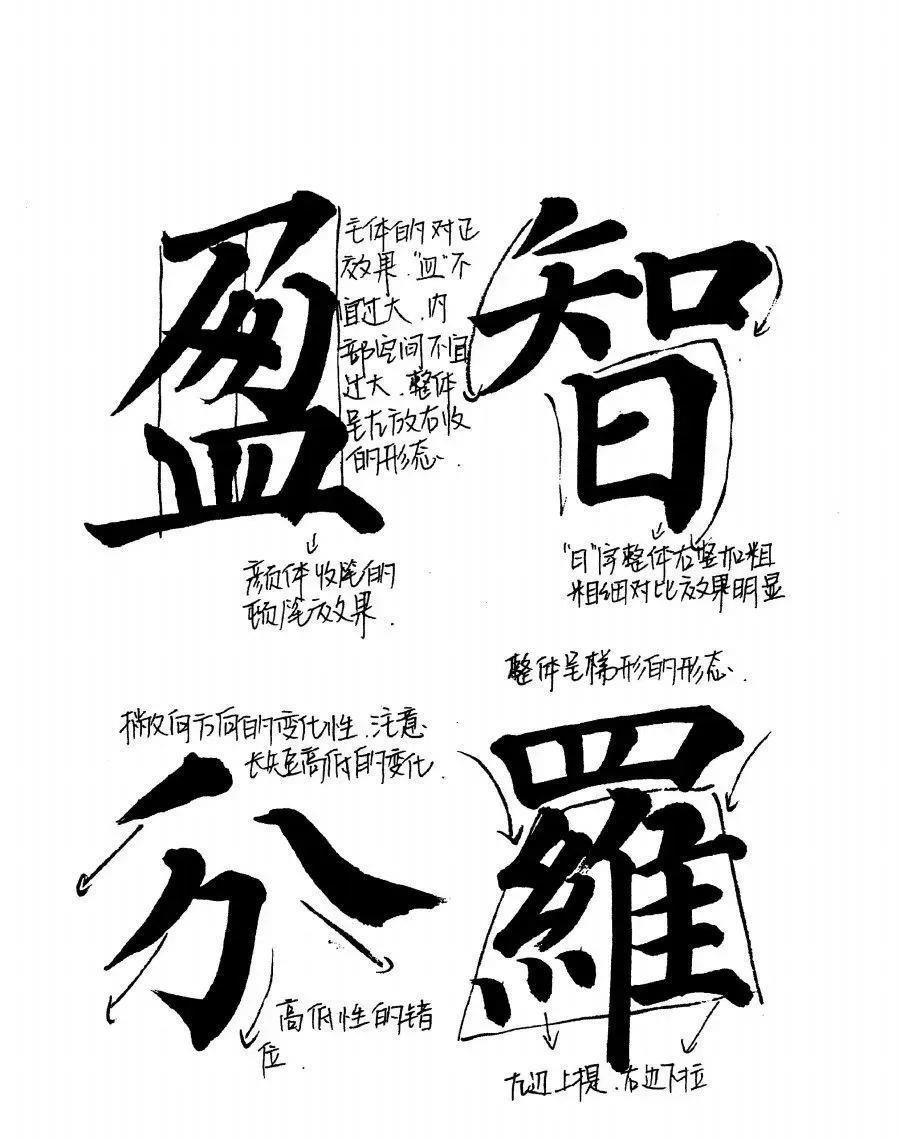 盈
主体的对正
效果."皿"不
宜过大、内
部空间不宜
过大.整体
呈左放右收
的形态.
颜体收笔的
顿笔效果.
智
"日"字整体右竖加粗
粗细对比效果明显
撇收向方向的变化性.注意
长短高低的变化.
分
高低性的错
位.
整体呈梯形的形态.
羅
左边上提.右边下拉